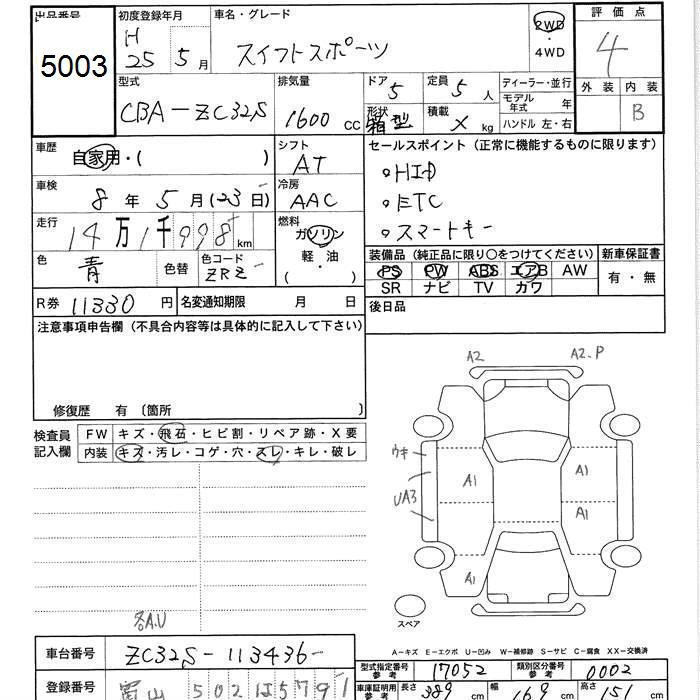 出品番号 初度登録年月 車名・グレード 評価点
5003 H 25 5月 スイフトスポーツ 2WD・4WD 4
型式 排気量 ドア 5 定員 5人 ディーラー・並行 外装 内装
CBA-ZC32S 1600cc 形状 箱型 積載 X kg モデル年式 年 B
ハンドル 左・右
車歴 シフト セールスポイント（正常に機能するものに限ります）
自家用・( ) AT 。HID
車検 冷房 。ETC
8年5月(23日) AAC 。スマートキー
走行 燃料
14万1千998km ガソリン・軽・油 装備品（純正品に限り○をつけてください） 新車保証書
色 色替 色コード PS PW ABS エアB AW 有・無
青 ZRZ- SR ナビ TV カワ
R券 11330円 名変通知期限 月 日 後日品
注意事項申告欄（不具合内容等は具体的に記入して下さい）
修復歴 有〔箇所 〕
検査員記入欄 FW キズ・飛石・ヒビ割・リペア跡・X要
内装 キズ・汚レ・コゲ・穴・スレ・キレ・破レ
A2 A2.P
ウキ A1 A1
UA3 A1
A1
スペア
各A.U
A-キズ E-エクボ U-凹み W-補修跡 S-サビ C-腐食 XX-交換済
車台番号 ZC32S-113436-
型式指定番号 参考 17052 類別区分番号 参考 0002
登録番号 富山 502
車庫証明用 参考 長さ 389cm 幅 169cm 高さ 151cm